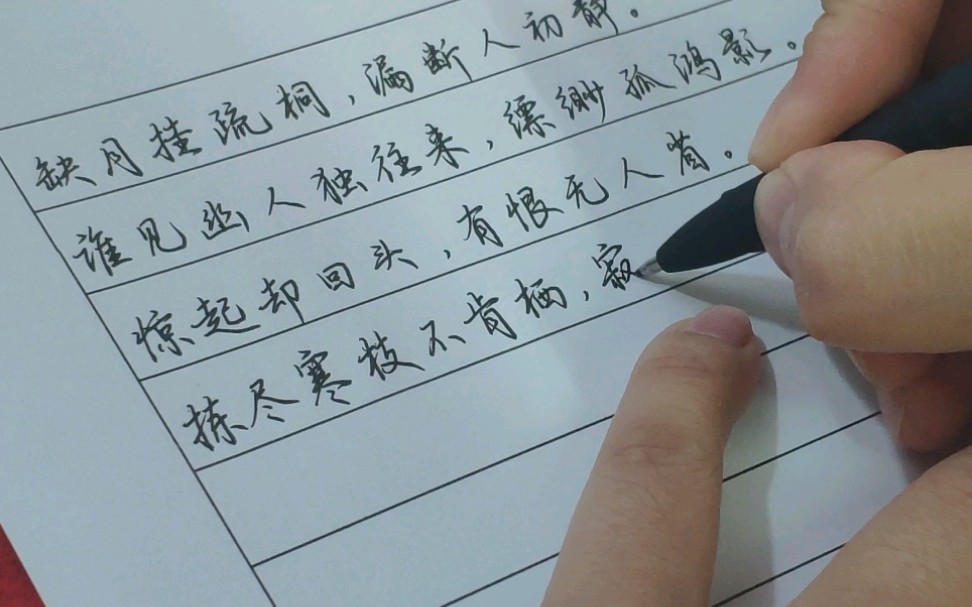 缺月挂疏桐，漏断人初静。
谁见幽人独往来，缥缈孤鸿影。
惊起却回头，有恨无人省。
拣尽寒枝不肯栖，寂